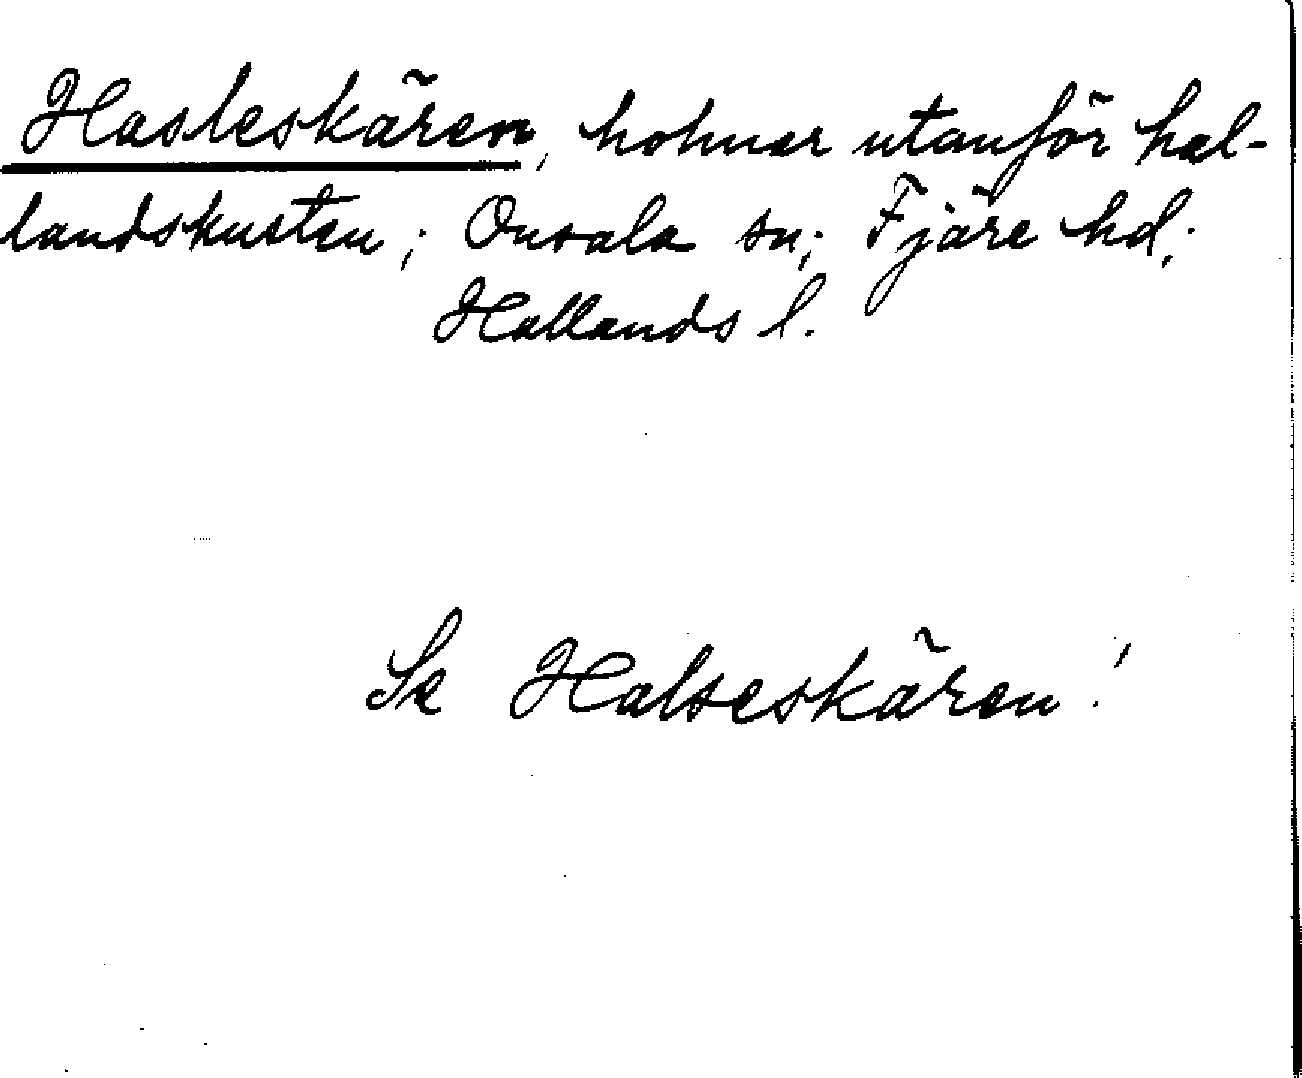 Hasleskären, holmar utanför hal-
landskusten; Onsala sn; Fjäre hd;
Hallands l.
Se Halseskären!